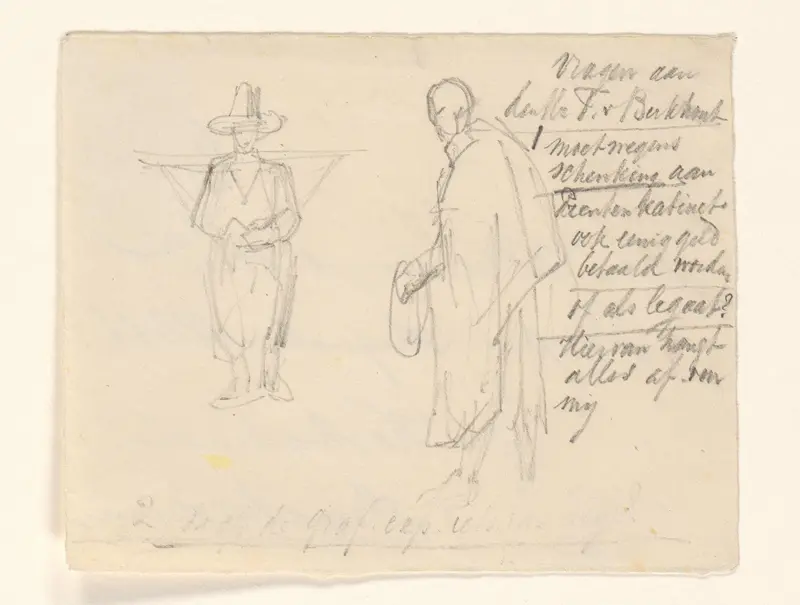 Vragen aan
den Hr T. v Berkhout
1 moet wegens
schenking aan
Prentenkabinet
ook eenig geld
betaald worden
of als legaat?
Hiervan hangt
alles af voor
mij
2 de graf. exp.